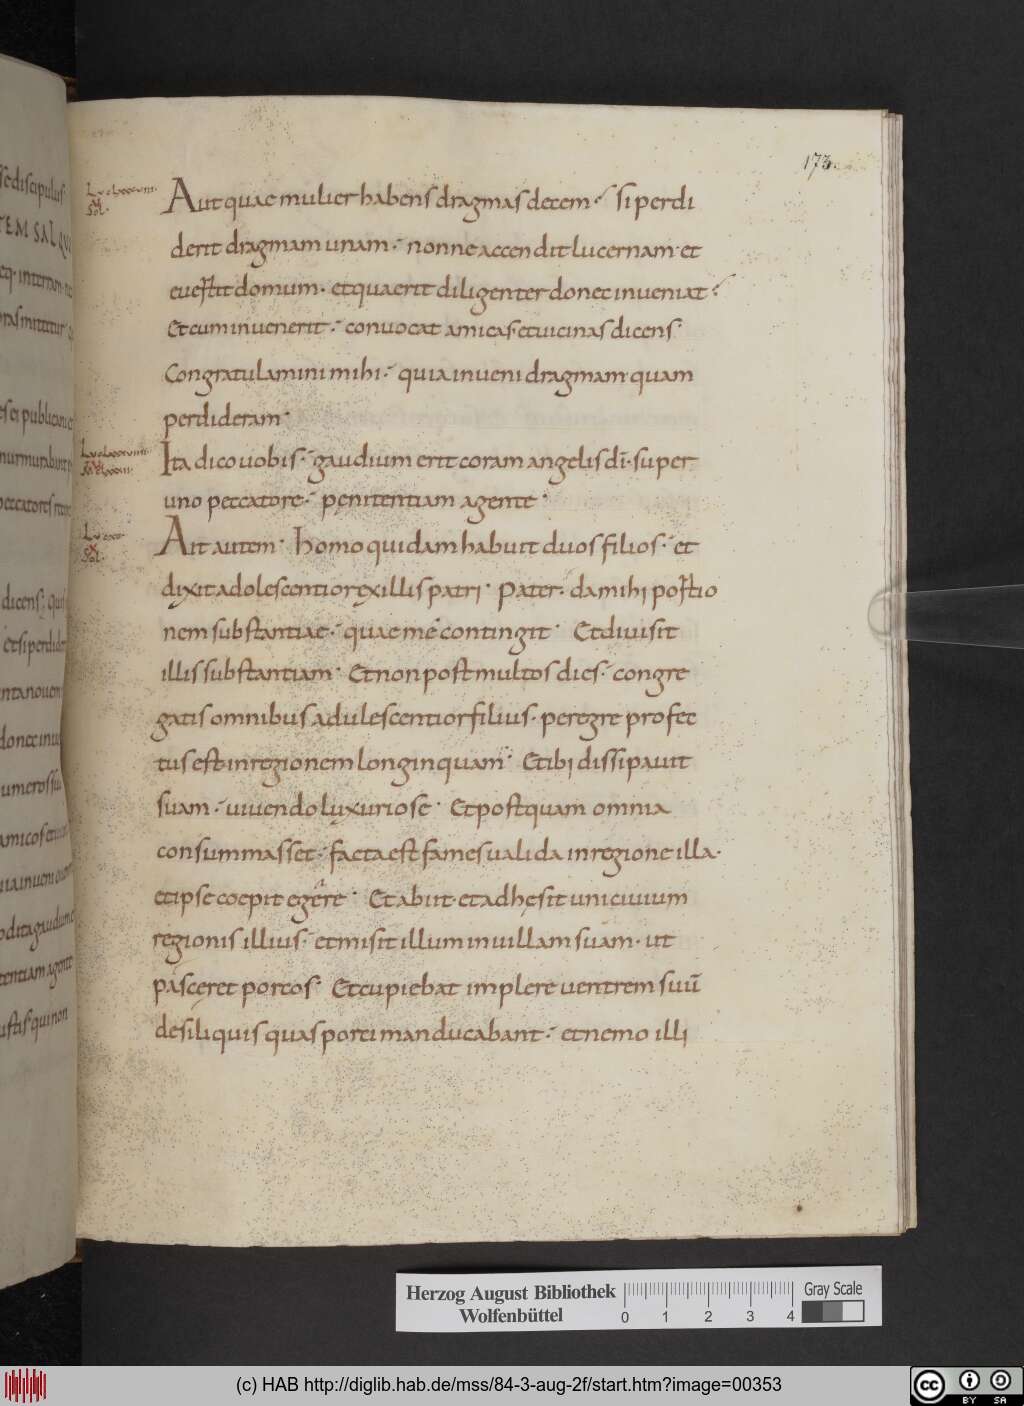 173.
Aut quae mulier habens dragmas decem. si perdi
derit dragmam unam. nonne accendit lucernam. et
euertit domum. et quaerit diligenter donec inueniat.
Et cum inuenerit. conuocat amicas. et uicinas dicens.
Congratulamini mihi. quia inueni dragmam. quam
perdideram.
Ita dico uobis. gaudium erit coram angelis dī. super
uno peccatore. penitentiam agente.
Ait autem. homo quidam habuit duos filios. et
dixit adolescentior ex illis patri. Pater. da mihi portio
nem substantiae. quae me contingit. Et diuisit
illis substantiam. Et non post multos dies. congre
gatis omnibus adulescentior filius. peregre profec
tus est in regionem longinquam. Et ibi dissipauit
suam. uiuendo luxuriose. Et postquam omnia
consummasset. facta est fames ualida in regione illa.
et ipse coepit egere. Et abiit. et adhęsit uni ciuium
regionis illius. et misit illum in uillam suam. ut
pasceret porcos. Et cupiebat implere uentrem suū
de siliquis quas porci manducabant. et nemo illi
Herzog August Bibliothek
Wolfenbüttel
0 1 2 3 4
Gray Scale
(c) HAB http://diglib.hab.de/mss/84-3-aug-2f/start.htm?image=00353
cc BY SA